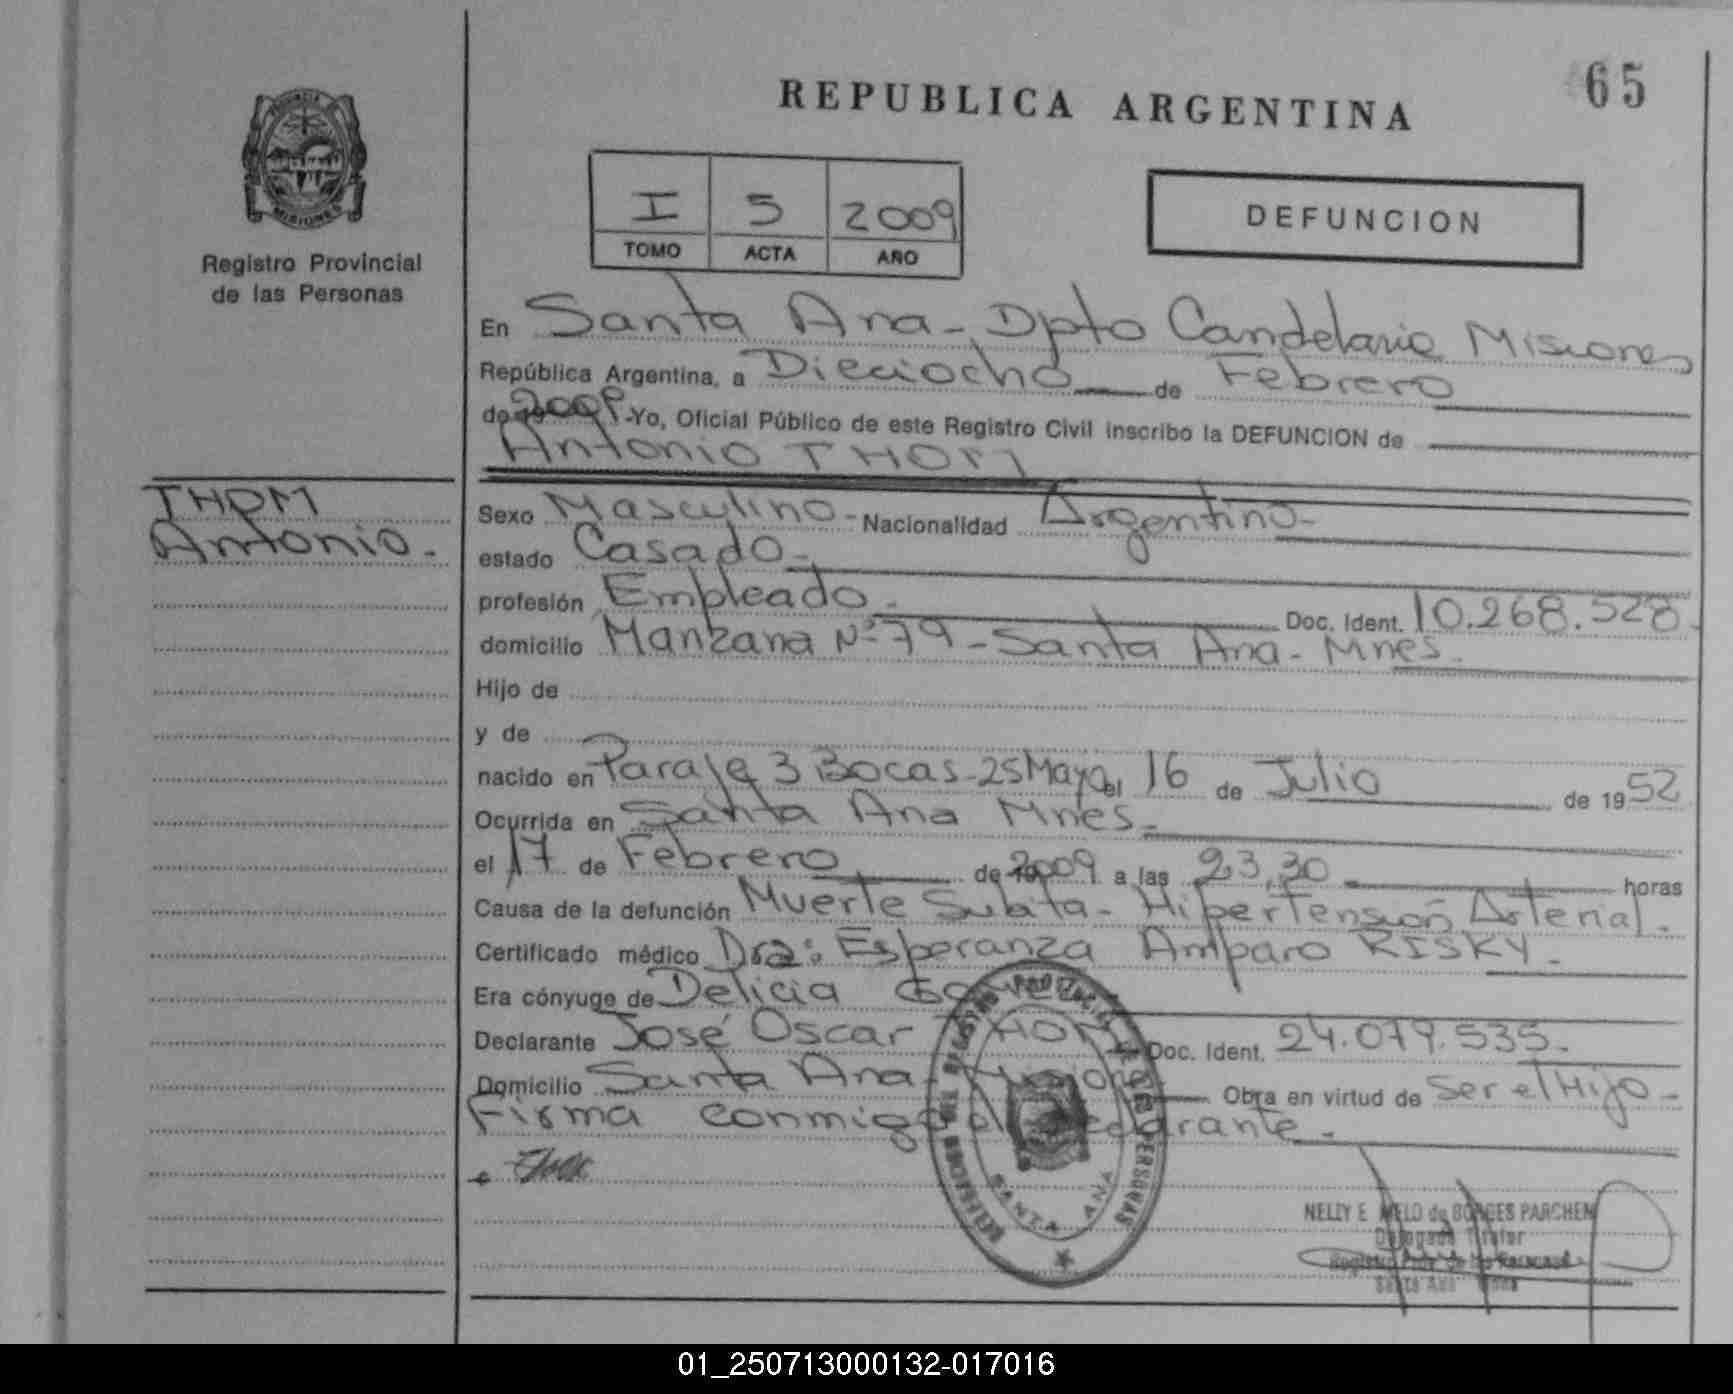 65
REPUBLICA ARGENTINA
PROVINCIA
MISIONES
Registro Provincial
de las Personas
I 5 2009
TOMO ACTA AÑO
DEFUNCION
En Santa Ana - Dpto Candelaria Misiones
República Argentina, a Dieciocho de Febrero
de 2009 -Yo, Oficial Público de este Registro Civil inscribo la DEFUNCION de
Antonio THOM
THOM
Antonio.-
Sexo Masculino - Nacionalidad Argentino-
estado Casado-
profesión Empleado - Doc. Ident. 10.268.528.
domicilio Manzana Nº 79 - Santa Ana - Mnes.
Hijo de
y de
nacido en Paraje 3 Bocas - 25 Mayo el 16 de Julio de 1952
Ocurrida en Santa Ana Mnes.-
el 17 de Febrero de 2009 a las 23,30 horas
Causa de la defunción Muerte Subita - Hipertensión Arterial.
Certificado médico Dra: Esperanza Amparo RISKY.-
Era cónyuge de Delicia
Declarante José Oscar THOM Doc. Ident. 24.079.535.-
Domicilio Santa Ana - Misiones Obra en virtud de Ser el Hijo -
Firma conmigo el declarante.-
REGISTRO PROVINCIAL DE LAS PERSONAS
SANTA ANA
NELLY E. MELO de BORGES PARCHEN
Delegada Titular
Registro Prov. de las Personas
Santa Ana Mnes
01_250713000132-017016